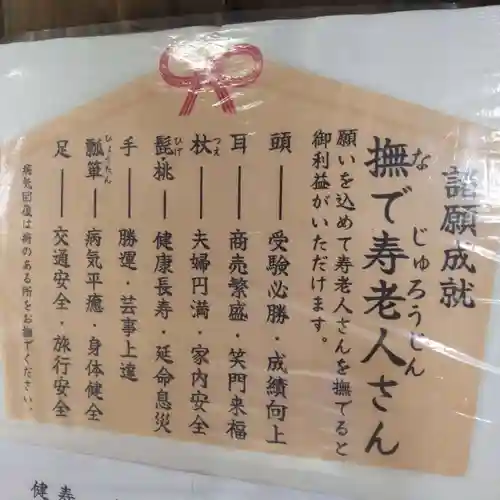 諸願成就
撫で寿老人さん
な じゅろうじん
願いを込めて寿老人さんを撫でると
御利益がいただけます。
頭――受験必勝・成績向上
耳――商売繁盛・笑門来福
杖――夫婦円満・家内安全
つえ
髭・桃――健康長寿・延命息災
ひげ
手――勝運・芸事上達
瓢箪――病気平癒・身体健全
ひょうたん
足――交通安全・旅行安全
病気回復は病のある所をお撫でください。
寿
健